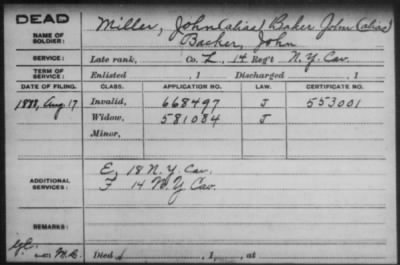 DEAD
NAME OF SOLDIER: Miller, John (alias) Baker John (alias)
Backer, John
SERVICE: Late rank, Co. L, 14 Reg't N.Y. Cav.
TERM OF SERVICE: Enlisted , 1 Discharged , 1
DATE OF FILING. CLASS. APPLICATION NO. LAW. CERTIFICATE NO.
1888, Aug 17 Invalid, 668497 J 553001
Widow, 581084 J
Minor,
ADDITIONAL SERVICES: E, 18 N.Y. Cav.
F 14 N.Y Cav.
REMARKS:
Died , 1 , at